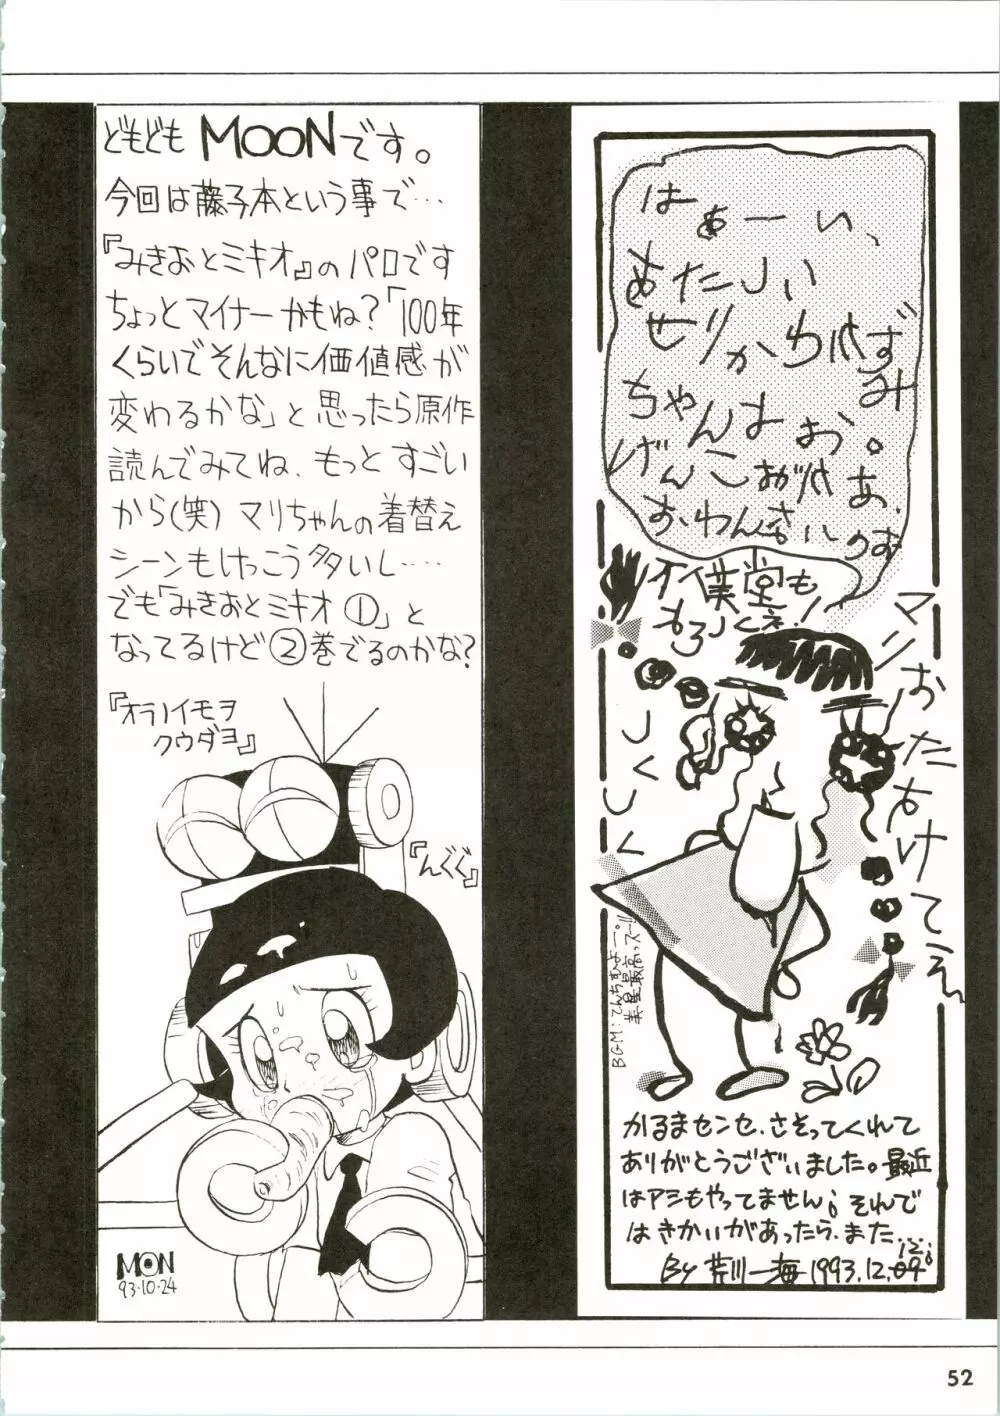 はぁーい、
あたしい
せりかわかずみ
ちゃんよぉ。
マリおたすけてえ
しくしく
BGM:てんちむよー。
美星最高っスー!!
かるまセンセ、さそってくれて
ありがとうございました。最近
はアシもやってません。それで
はきかいがあったら、また...
By 芹川一海 1993.12.09
どもども MOONです。
今回は藤子本という事で…
『みきおとミキオ』のパロです
ちょっとマイナーかもね?「100年
くらいでそんなに価値感が
変わるかな」と思ったら原作
読んでみてね、もっとすごい
から(笑) マリちゃんの着替え
シーンもけっこう多いし……
でも「みきおとミキオ①」と
なってるけど②巻でるのかな?
『オラノイモヲ
クウダヨ』
『んぐぐ』
MOON
93・10・24
52